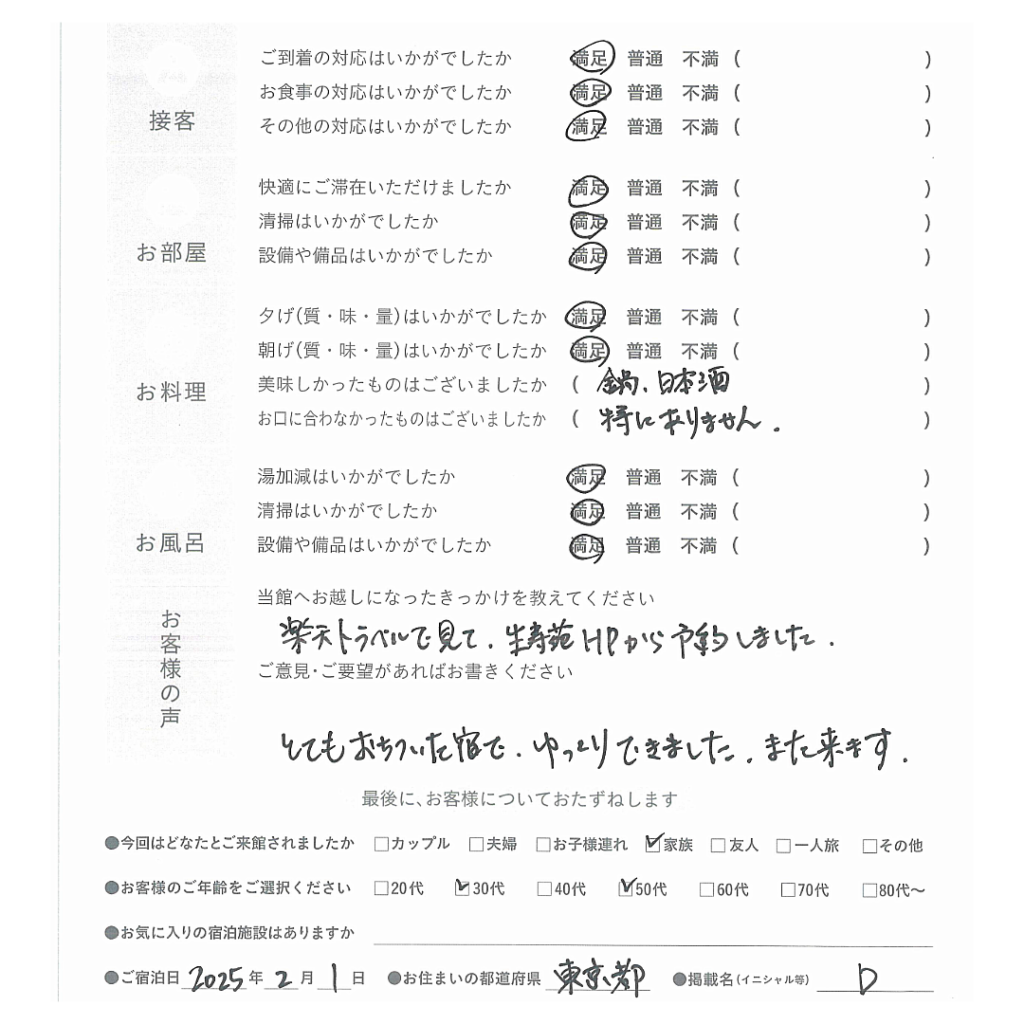 接客
ご到着の対応はいかがでしたか 満足 普通 不満 ( )
お食事の対応はいかがでしたか 満足 普通 不満 ( )
その他の対応はいかがでしたか 満足 普通 不満 ( )
お部屋
快適にご滞在いただけましたか 満足 普通 不満 ( )
清掃はいかがでしたか 満足 普通 不満 ( )
設備や備品はいかがでしたか 満足 普通 不満 ( )
お料理
夕げ(質・味・量)はいかがでしたか 満足 普通 不満 ( )
朝げ(質・味・量)はいかがでしたか 満足 普通 不満 ( )
美味しかったものはございましたか ( 鍋、日本酒 )
お口に合わなかったものはございましたか ( 特にありません. )
お風呂
湯加減はいかがでしたか 満足 普通 不満 ( )
清掃はいかがでしたか 満足 普通 不満 ( )
設備や備品はいかがでしたか 満足 普通 不満 ( )
お客様の声
当館へお越しになったきっかけを教えてください
楽天トラベルで見て、生寿苑HPから予約しました.
ご意見・ご要望があればお書きください
とてもおちついた宿で、ゆっくりできました. また来ます.
最後に、お客様についておたずねします
●今回はどなたとご来館されましたか □カップル □夫婦 □お子様連れ ☑家族 □友人 □一人旅 □その他
●お客様のご年齢をご選択ください □20代 ☑30代 □40代 ☑50代 □60代 □70代 □80代〜
●お気に入りの宿泊施設はありますか
●ご宿泊日 2025年 2月 1日 ●お住まいの都道府県 東京都 ●掲載名(イニシャル等) D